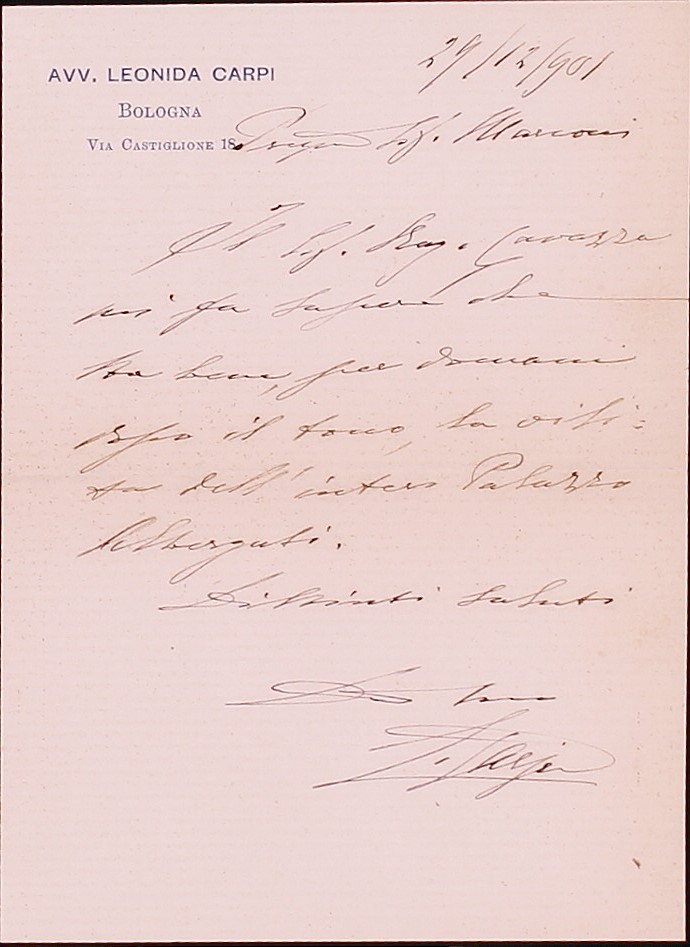 29/12/901
AVV. LEONIDA CARPI
BOLOGNA
VIA CASTIGLIONE 18
Preg. Sig. Marconi
Il Sig. Rag. Cavazza
mi fa sapere che
sta bene, per domani
dopo il tocco, la visi=
ta dell'intero Palazzo
Albergati.
Distinti saluti
L. Carpi